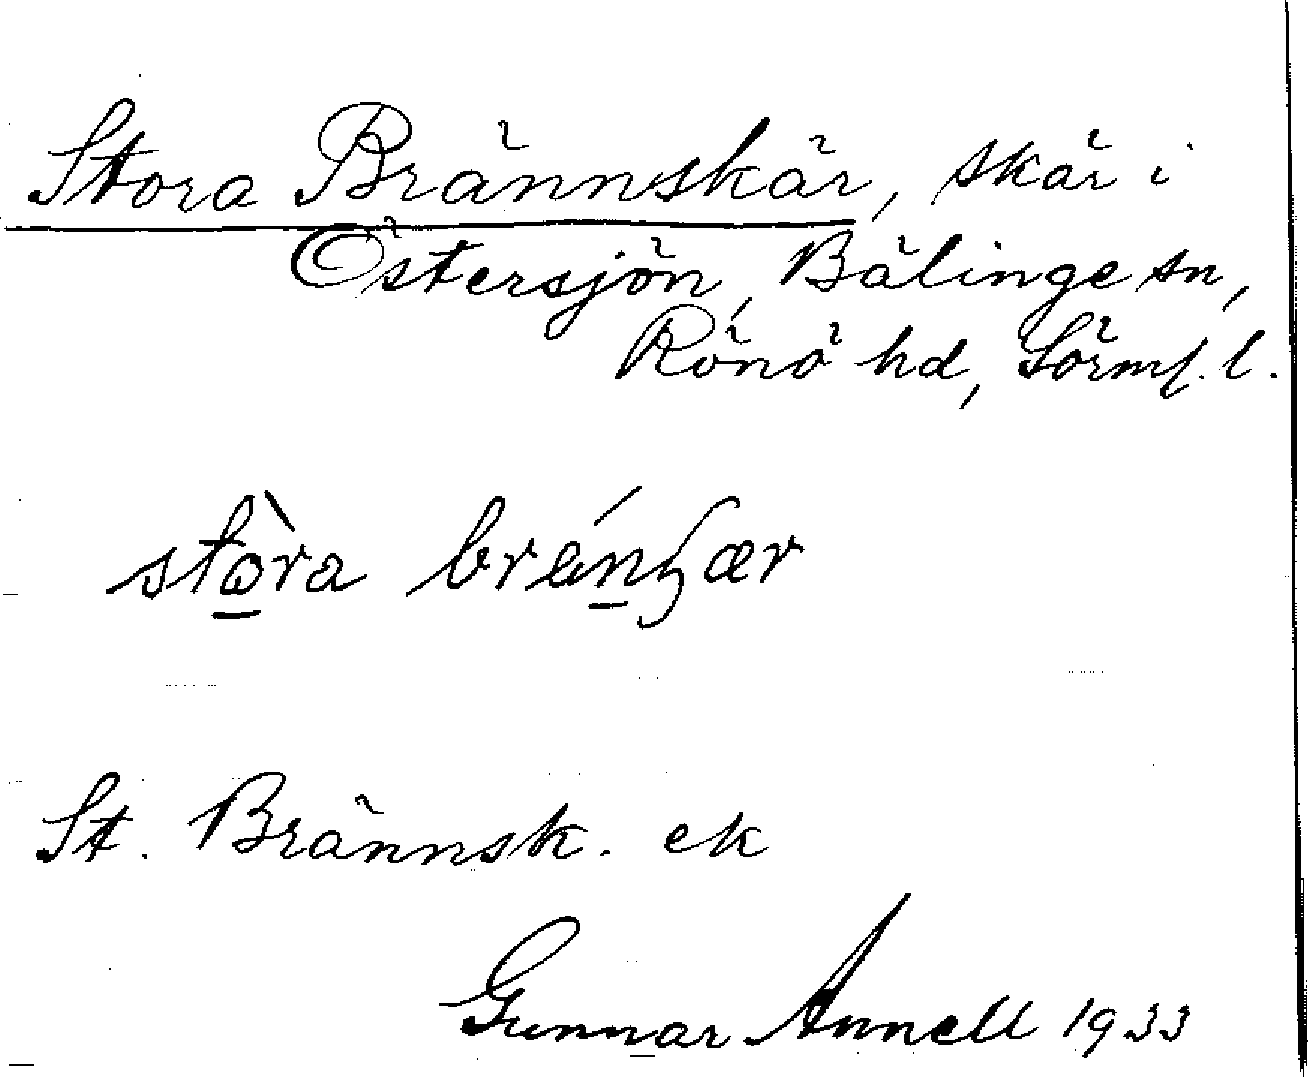 Stora Brännskär, skär i
Östersjön, Bälinge sn,
Rönö hd, Sörml. l.
stòra
St. Brännsk. ek
Gunnar Annell 1933